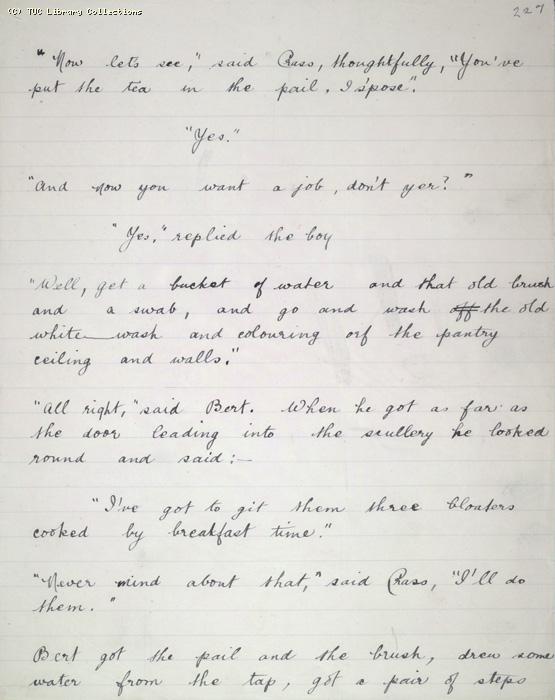 (C) TUC Library Collections
227
"Now lets see," said Crass, thoughtfully, "You've
put the tea in the pail, I s'pose".
"Yes."
"And now you want a job, don't yer?"
"Yes," replied the boy
"Well, get a bucket of water and that old brush
and a swab, and go and wash off the old
white-wash and colouring orf the pantry
ceiling and walls."
"All right," said Bert. When he got as far as
the door leading into the scullery he looked
round and said:-
"I've got to git them three bloaters
cooked by breakfast time."
"Never mind about that," said Crass, "I'll do
them."
Bert got the pail and the brush, drew some
water from the tap, got a pair of steps